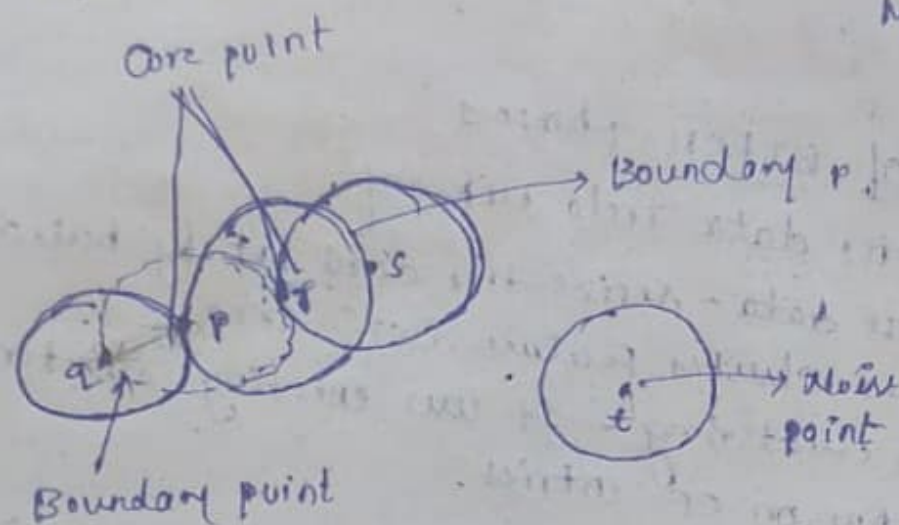 Core point
Boundary p.
p
r
s
q
t
Noise
point
Boundary point